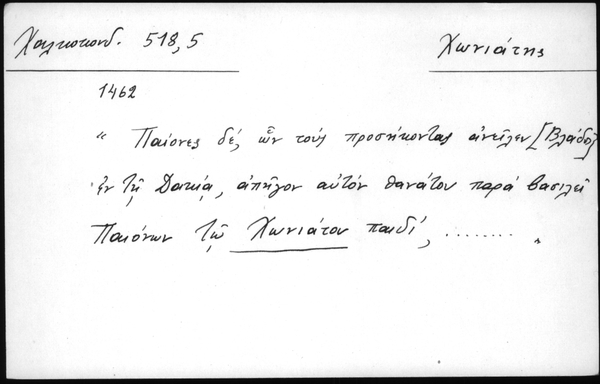 Χαλκοκονδ. 518,5 Χωνιάτης
1462
" Παίονες δέ, ὧν τούς προσήκοντας ἀνεῖλεν [Βλάδος]
ἐν τῇ Δακίᾳ, ἀπῆγον αὐτόν θανάτου παρά βασιλεῖ
Παιόνων τῷ Χωνιάτου παιδί, ........ "